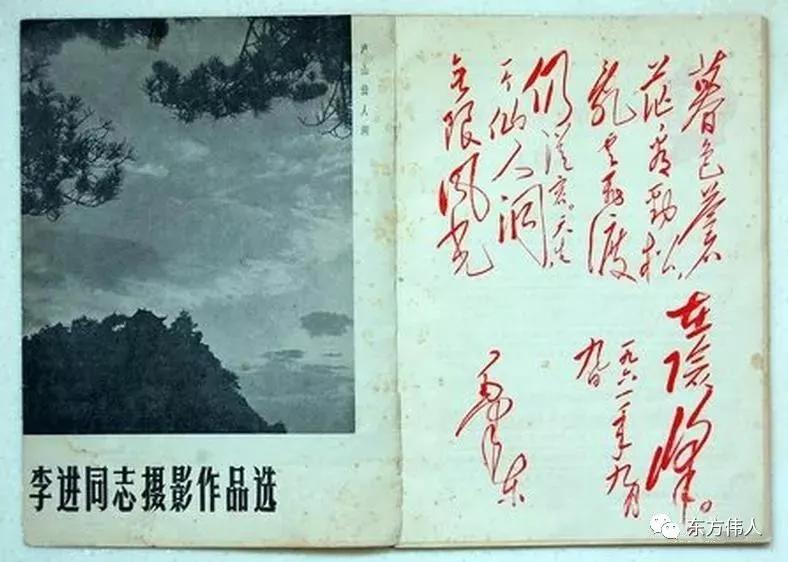 庐山仙人洞
李进同志摄影作品选
暮色蒼
茫看勁松,
亂雲飛渡
仍從容。天生
一个仙人洞
无限風光
在險峰。
一九六一年九月
九日
毛泽东
东方伟人